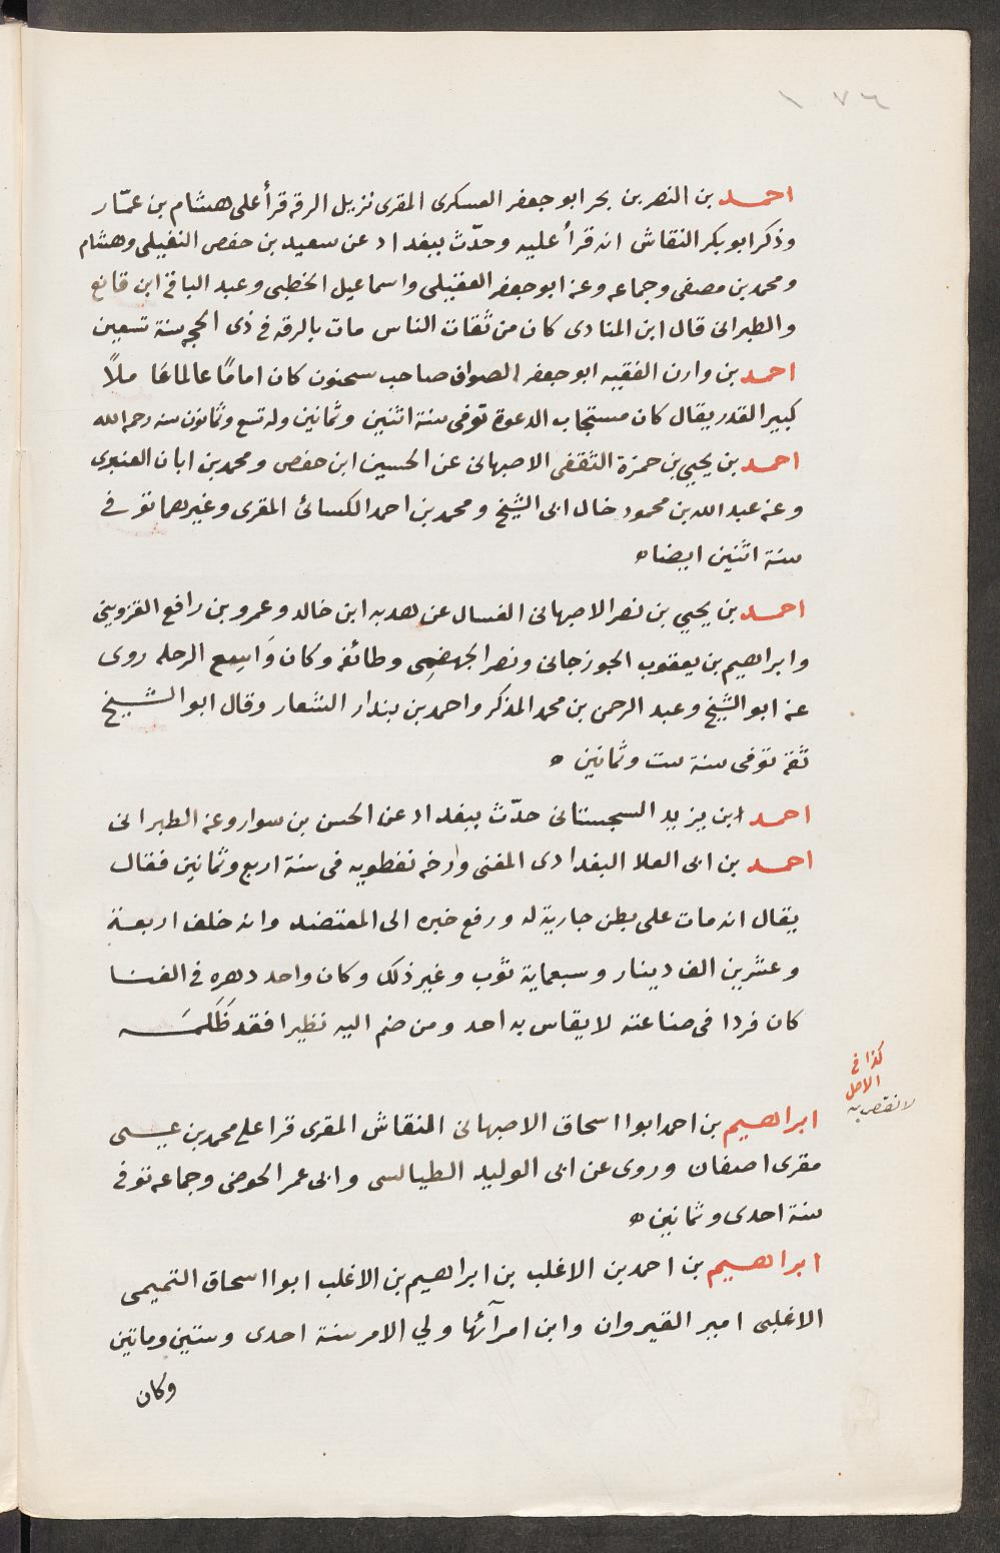 ١٧٦
احمد بن النصر بن بحر ابو جعفر العسكرى المقرى نزيل الرقه قرأ على هشام بن عمّار
وذكر ابو بكر النقاش انه قرأ عليه وحدّث ببغداد عن سعيد بن حفص النفيلى وهشام
ومحمد بن مصفى وجماعه وعنه ابو جعفر العقيلى واسماعيل الخطبى وعبد الباقى ابن قانع
والطبرانى قال ابن المنادى كان من ثقات الناس مات بالرقه فى ذى الحجه سنة تسعين
احمد بن وازن الفقيه ابو جعفر الصواف صاحب سحنون كان امامًا عالمًا عاملًا
كبير القدر يقال كان مستجاب الدعوة توفى سنة اثنين وثمانين وله تسع وثمانون سنه رحمه الله
احمد بن يحيي بن حمزة الثقفى الاصبهانى عن الحسين ابن حفص ومحمد بن ابان العنبرى
وعنه عبد الله بن محمود خال ابى الشيخ ومحمد بن احمد الكسائى المقرى وغيرهما توفى
سنة اثنين ايضا ه
احمد بن يحيي بن نصر الاصبهانى الغسال عن هدبه ابن خالد وعمرو بن رافع القزوينى
وابراهيم بن يعقوب الجوزجانى ونصر الجهضمى وطائفه وكان واسع الرحله روى
عنه ابو الشيخ وعبد الرحمن بن محمد المذكر واحمد بن بندار الشعار وقال ابو الشيخ
ثقه توفى سنة ست وثمانين ه
احمد ابن يزيد السجستانى حدّث ببغداد عن الحسن بن سوار وعنه الطبرانى
احمد بن ابى العلا البغدادى المغنى وارخه نفطويه فى سنة اربع وثمانين فقال
يقال انه مات على بطن جارية له ورفع خبره الى المعتضد وانه خلف اربعة
وعشرين الف دينار وسبعماية ثوب وغير ذلك وكان واحد دهره فى الغنا
كان فردا فى صناعته لا يقاس به احد ومن ضم اليه نظيرا فقد ظَلمَه
كذا فى
الاصل
لا نقص به
ابراهيم بن احمد ابوا اسحاق الاصبهانى النقاش المقرى قرا على محمد بن عيسى
مقرى اصفان وروى عن ابى الوليد الطيالسى وابى عمر الحوضى وجماعه توفى
سنة احدى وثمانين ه
ابراهيم بن احمد بن الاغلب بن ابراهيم بن الاغلب ابوا اسحاق التميمى
الاغلبى امير القيروان وابن امرآئها ولي الامر سنة احدى وستين وماتين
وكان